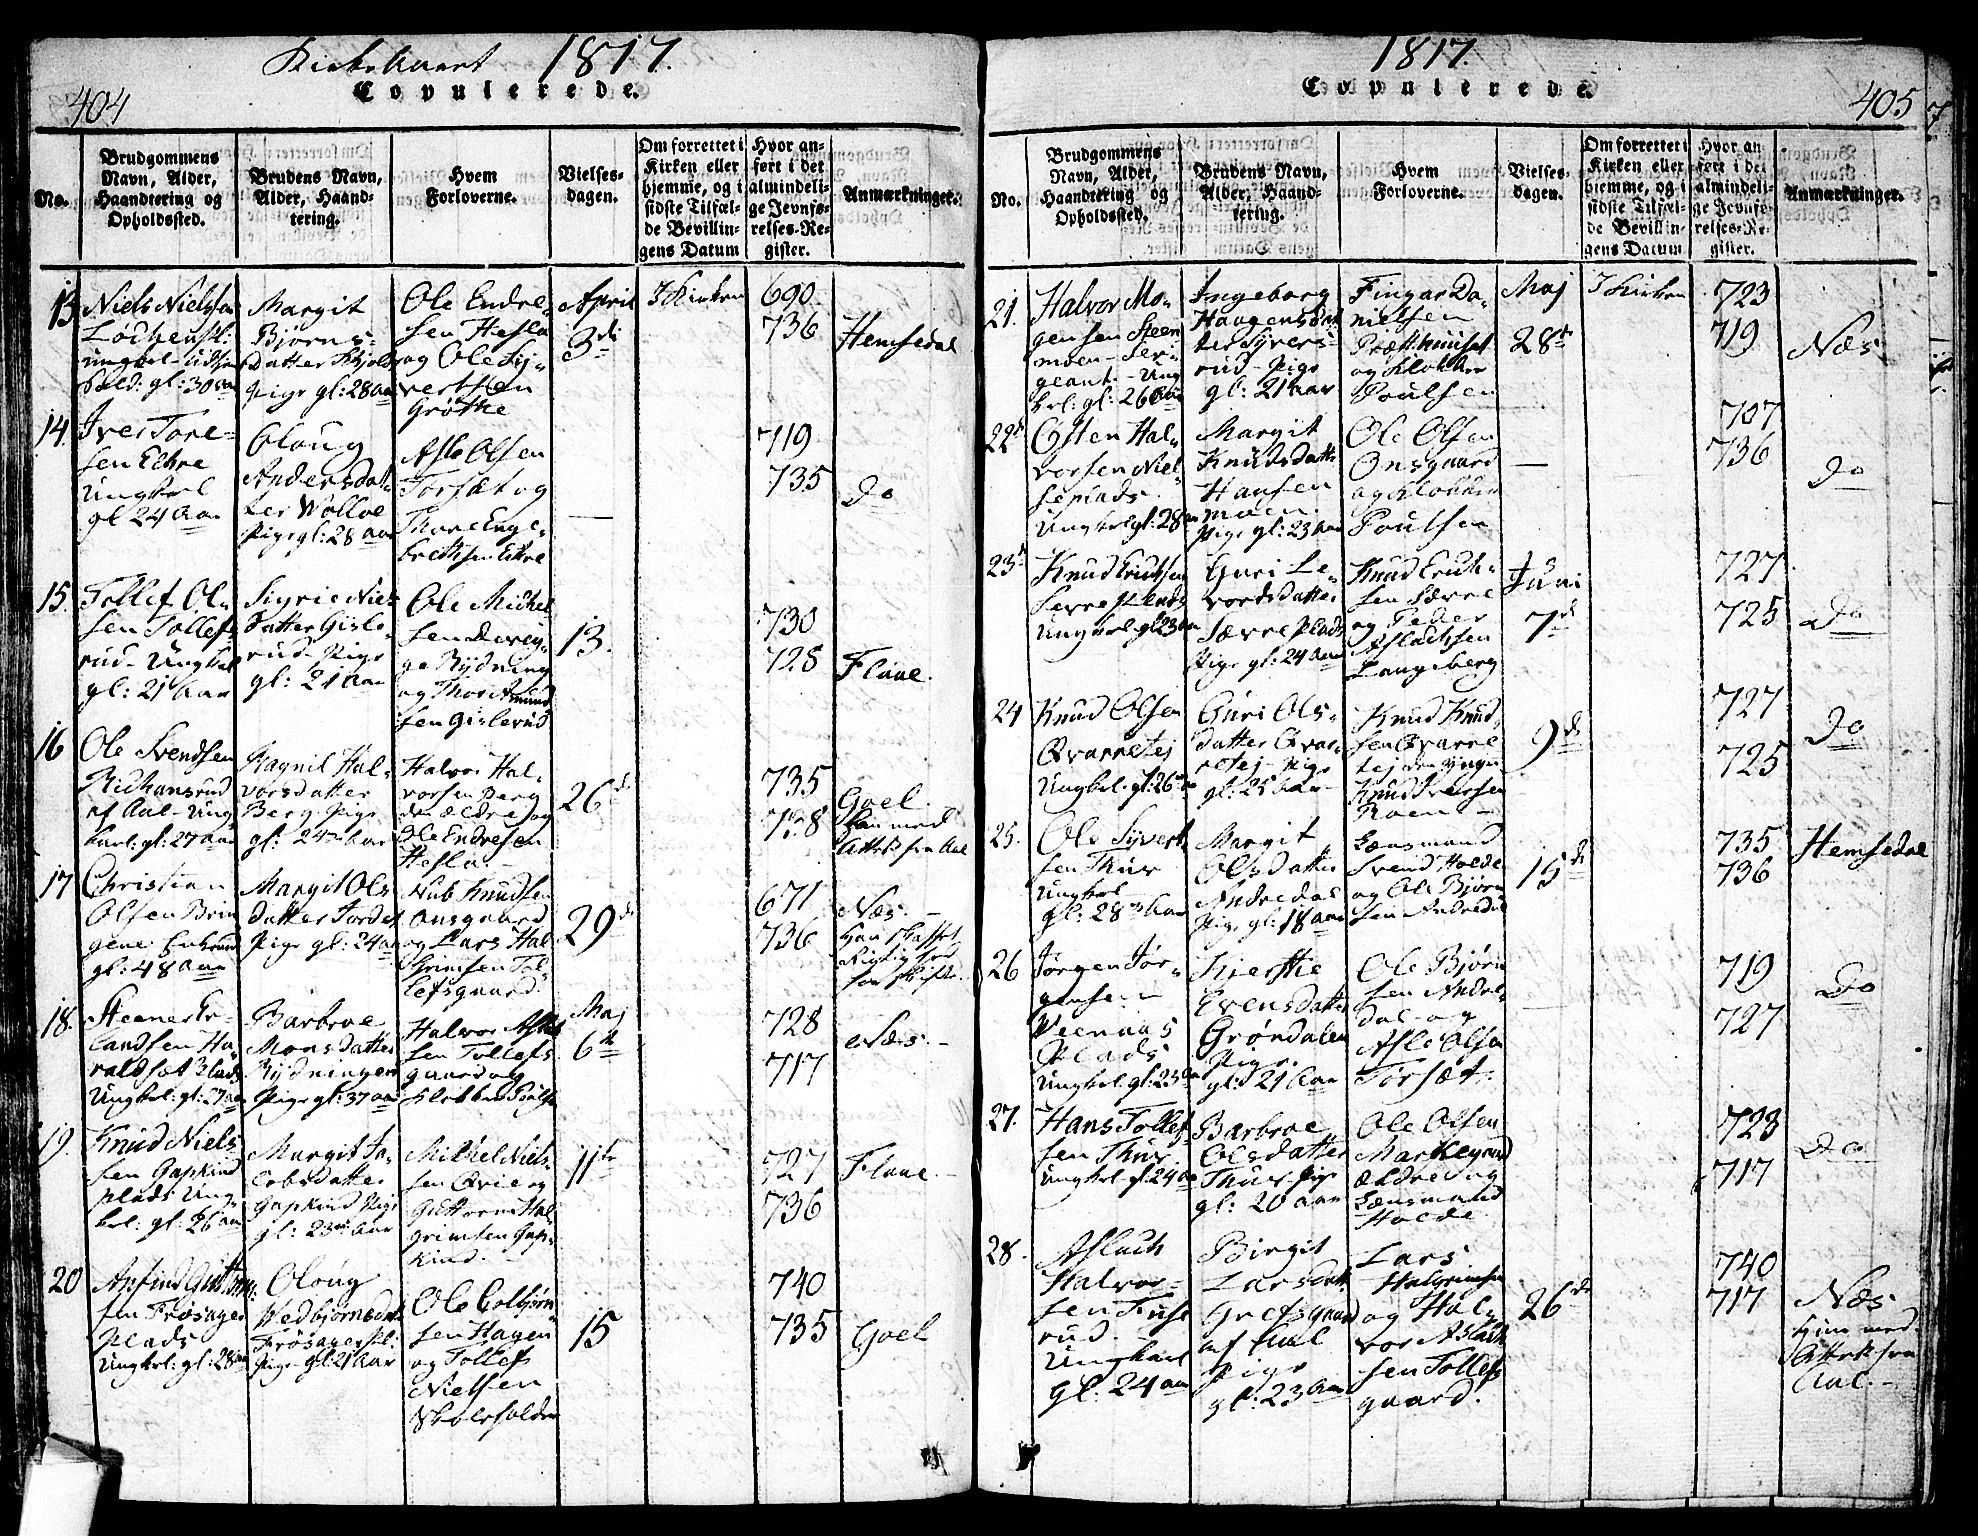 Kirke Aaret 1817.
404
Copulerede.
No.
Brudgommens Navn, Alder, Haandtering og Opholdssted.
Brudens Navn, Alder, Haandtering.
Hvem Forloverne.
Vielsesdagen.
Om forrettet i Kirken eller hjemme, og i sidste Tilfælde Bevillingens Datum
Hvor anført i det almindelige Jevnførelses-Register.
Anmærkninger.
13
Niels Nielsen
Ungkarl
gl: 30 Aar
Margit
Biørns-
Datter
Pige gl: 28 Aar
Ole Endre-
sen Hesla
og Ole Sy-
vertsen
Grøthe
April
3di
I Kirken
690
736
Hemsedal
14.
Iver Tore-
sen Eikre
Ungkarl
gl 24 Aar
Oloug
Andersdat-
ter Wolloe
Pige gl: 28 Aar
Asle Olsen
Torsæt og
Thore Enge-
brethsen Eikre
—
719
735
Do
15.
Tollef Ol-
sen Tollefs-
rud - Ungkarl
gl: 21 Aar
Sigrie Niels
Datter Gisle-
rud - Pige
gl: 21 Aar
Ole Mikkel-
sen
Rydning
og Thor Amund
sen Gislerud
13.
730
728
Flaae.
16
Ole Svendsen
af Aal - Ung-
karl: gl: 27 Aar
Ragnil Hal-
vorsdatter
Berg Pige
gl: 24 Aar
Halvor Hal-
vorsen Berg
den ældre og
Ole Endresen
Hesla -
26de
735
738
Goel.
Han med
Attest fra Aal
17
Christian
Olsen Brin
gene Enkemand
gl: 48 Aar
Margit Ols
datter Jordet
Pige gl: 24 Aar
Nub Knudsen
Onsgaard
og Lars Hal
Grimsen Tol
lefsgaard.
29de
671
736
Næs. -
Han
18.
Steener Er-
landsen Ha-
raldset Plads
Ungkarl: gl: 27 Aar
Barbroe
Monsdatter
Rydningen
Pige gl: 37 Aar
Halvor Aslak
sen Tollefs
gaard og
Klokker Poulsen
Maj
6te
728
717
Næs. -
19.
Knud Niels
sen Gapkind
plads Ung-
karl: gl: 26 Aar
Margit Ja-
cobsdatter
Gapkind Pige
gl: 23 Aar
Mikkel Niels-
sen Qvie og
Guttorm Hal-
grimsen Gap-
kind.
11te
727
736
Flaae -
20
Arfind Guttorm-
sen Frøsager
Plads
Ungkarl: gl: 28 Aar
Oloug
Vedbjørnsdat
Frøsager Pl:
Pige gl: 21 Aar
Ole Colbjørn
sen Hagen
og Tollef
Nielsen
15
740
735
Goel
1817.
405
Copulerede.
No.
Brudgommens Navn, Alder, Haandtering og Opholdssted.
Brudens Navn, Alder, Haandtering.
Hvem Forloverne.
Vielsesdagen.
Om forrettet i Kirken eller hjemme, og i sidste Tilfælde Bevillingens Datum
Hvor anført i det almindelige Jevnførelses-Register.
Anmærkninger.
21.
Halvor Mo-
gensen Steen
moen - Ser-
geant. - Ung
karl: gl: 26 Aar
Ingeborg
Haagensdat
ter Syvers-
rud - Pige
gl: 21 Aar
Fingar Da-
nielsen
Præsthuuset
og Klokker
Poulsen
Maj
28de
I Kirken
723
719
Næs
22
Østen Hal-
vorsen Niel
seplads.
Ungkarl gl: 28 Aar
Margit
Knudsdatter
Hansen
moen
Pige gl: 23 Aar
Ole Olsen
Onsgaard
og Klokker
Poulsen
—
707
736
Do
23
Knud Erichsen
Særre Plads
Ungkarl gl 23 Aar
Guri Le-
vordsdatter
Særre Plads
Pige gl: 24 Aar
Knud Erich-
sen Særre
og Peder
Aslachsen
Langeberg
Juni
7de
727
725
Do
24
Knud Olsen
Qvarretej
Ungkarl. gl: 26 Aar
Guri Ols-
datter Qvar-
retej - Pige
gl: 25 Aar -
Knud Knud-
sen Qvarre
tej den yngre
Knud Iversen
Roen
9de
727
725
Do
25.
Ole Syvert
sen Thuv
Ungkarl
gl: 28 Aar
Margit
Olsdatter
Andredal
Pige gl: 18 Aar
Lænsmand
Svend Holde
og Ole Bjørn
sen Andredal
15de
735
736
Hemsedal
26
Jørgen Jør-
gensen -
Veenaas
Plads
Ungkarl: gl: 23 Aar
Kierstie
Evensdatter
Grøndalen
Pige.
gl: 21 Aar
Ole Bjørn
sen Andre-
dal - og
Asle Olsen
Torsæt.
—
719
727
Do
27.
Hans Tollef-
sen Thuv.
Ungkarl gl: 24 Aar
Barbroe
Olsdatter
Thuv Pige
gl: 20 Aar
Ole Olsen
Markegaard
ældre og
Lænsmand
Holde
723
717
Do
28.
Aslach
Halvor-
sen Tufse
rud.
Ungkarl
gl: 24 Aar
Birgit
Larsdatt:
Grefsgaard
af Aal
Pige
gl: 23 Aar
Lars
Halgrimsen
og Hal-
vor Aslack
sen Tollefs
gaard.
26de
740
717
Næs
Hun med
Attest fra
Aal. -